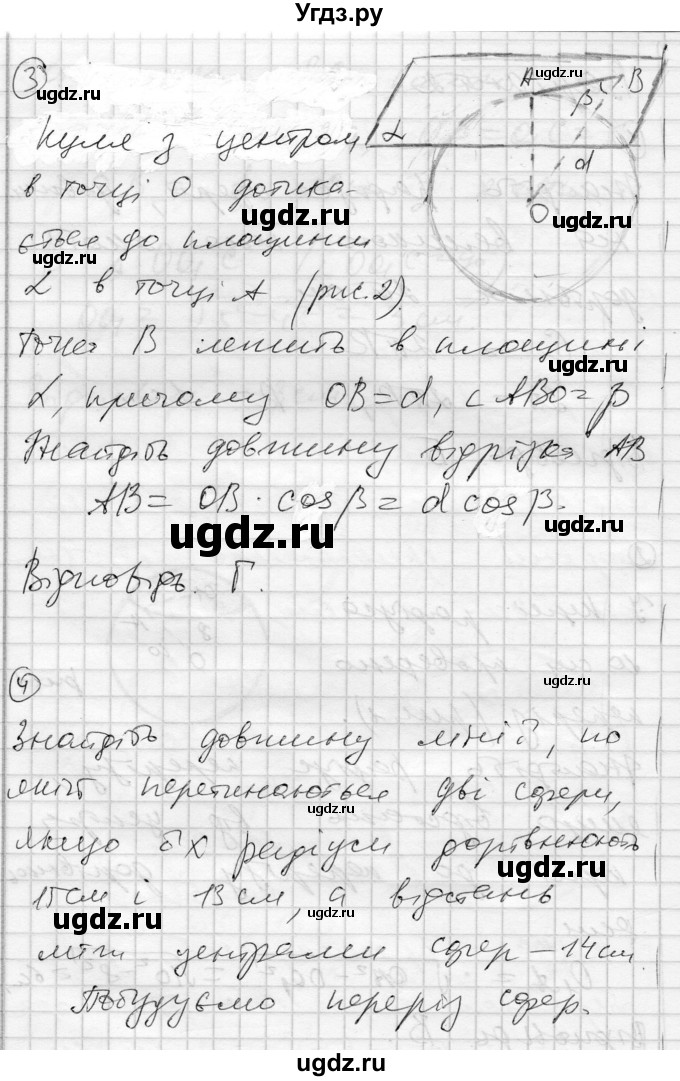 Угдз.ру
3
Куля з центром
в точці О дотика-
ється до площини
α в точці А (рис.2).
Точка В лежить в площині
α, причому OB=d, ∠ABO=β
Знайдіть довжину відрізка AB
AB= OB · cosβ= d cosβ.
Відповідь. Г.
A
B
β
α
d
O
4
Знайдіть довжину лінії, по
якій перетинаються дві сфери,
якщо їх радіуси дорівнюють
15см і 13см, а відстань
між центрами сфер – 14см.
Побудуємо переріз сфер.
ugdz.ru
ugdz.ru
ugdz.ru
ugdz.ru
ugdz.ru
ugdz.ru
ugdz.ru
ugdz.ru
ugdz.ru
ugdz.ru
ugdz.ru
ugdz.ru
ugdz.ru
ugdz.ru